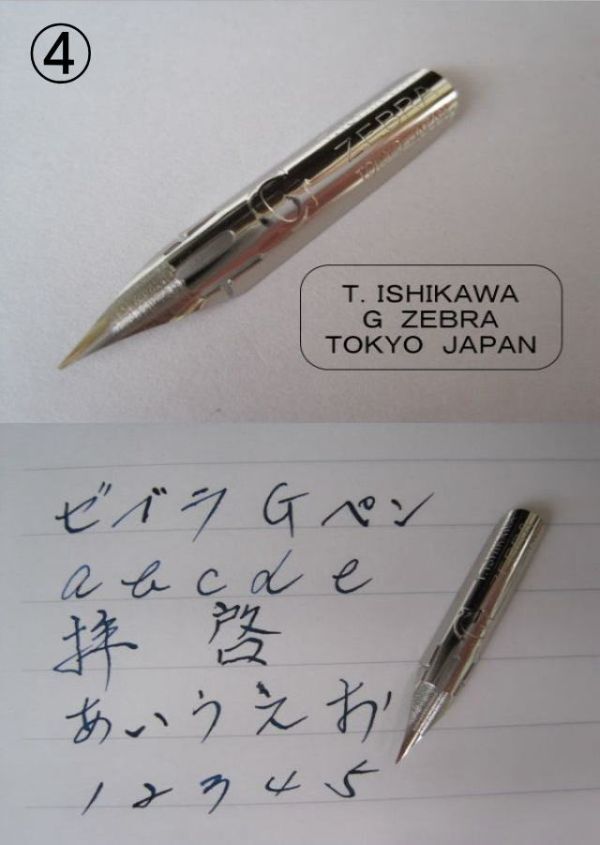 ④
G ZEBRA
T. ISHIKAWA
G ZEBRA
TOKYO JAPAN
ゼブラ Gペン
a b c d e
拝 啓
あいうえお
1 2 3 4 5
G